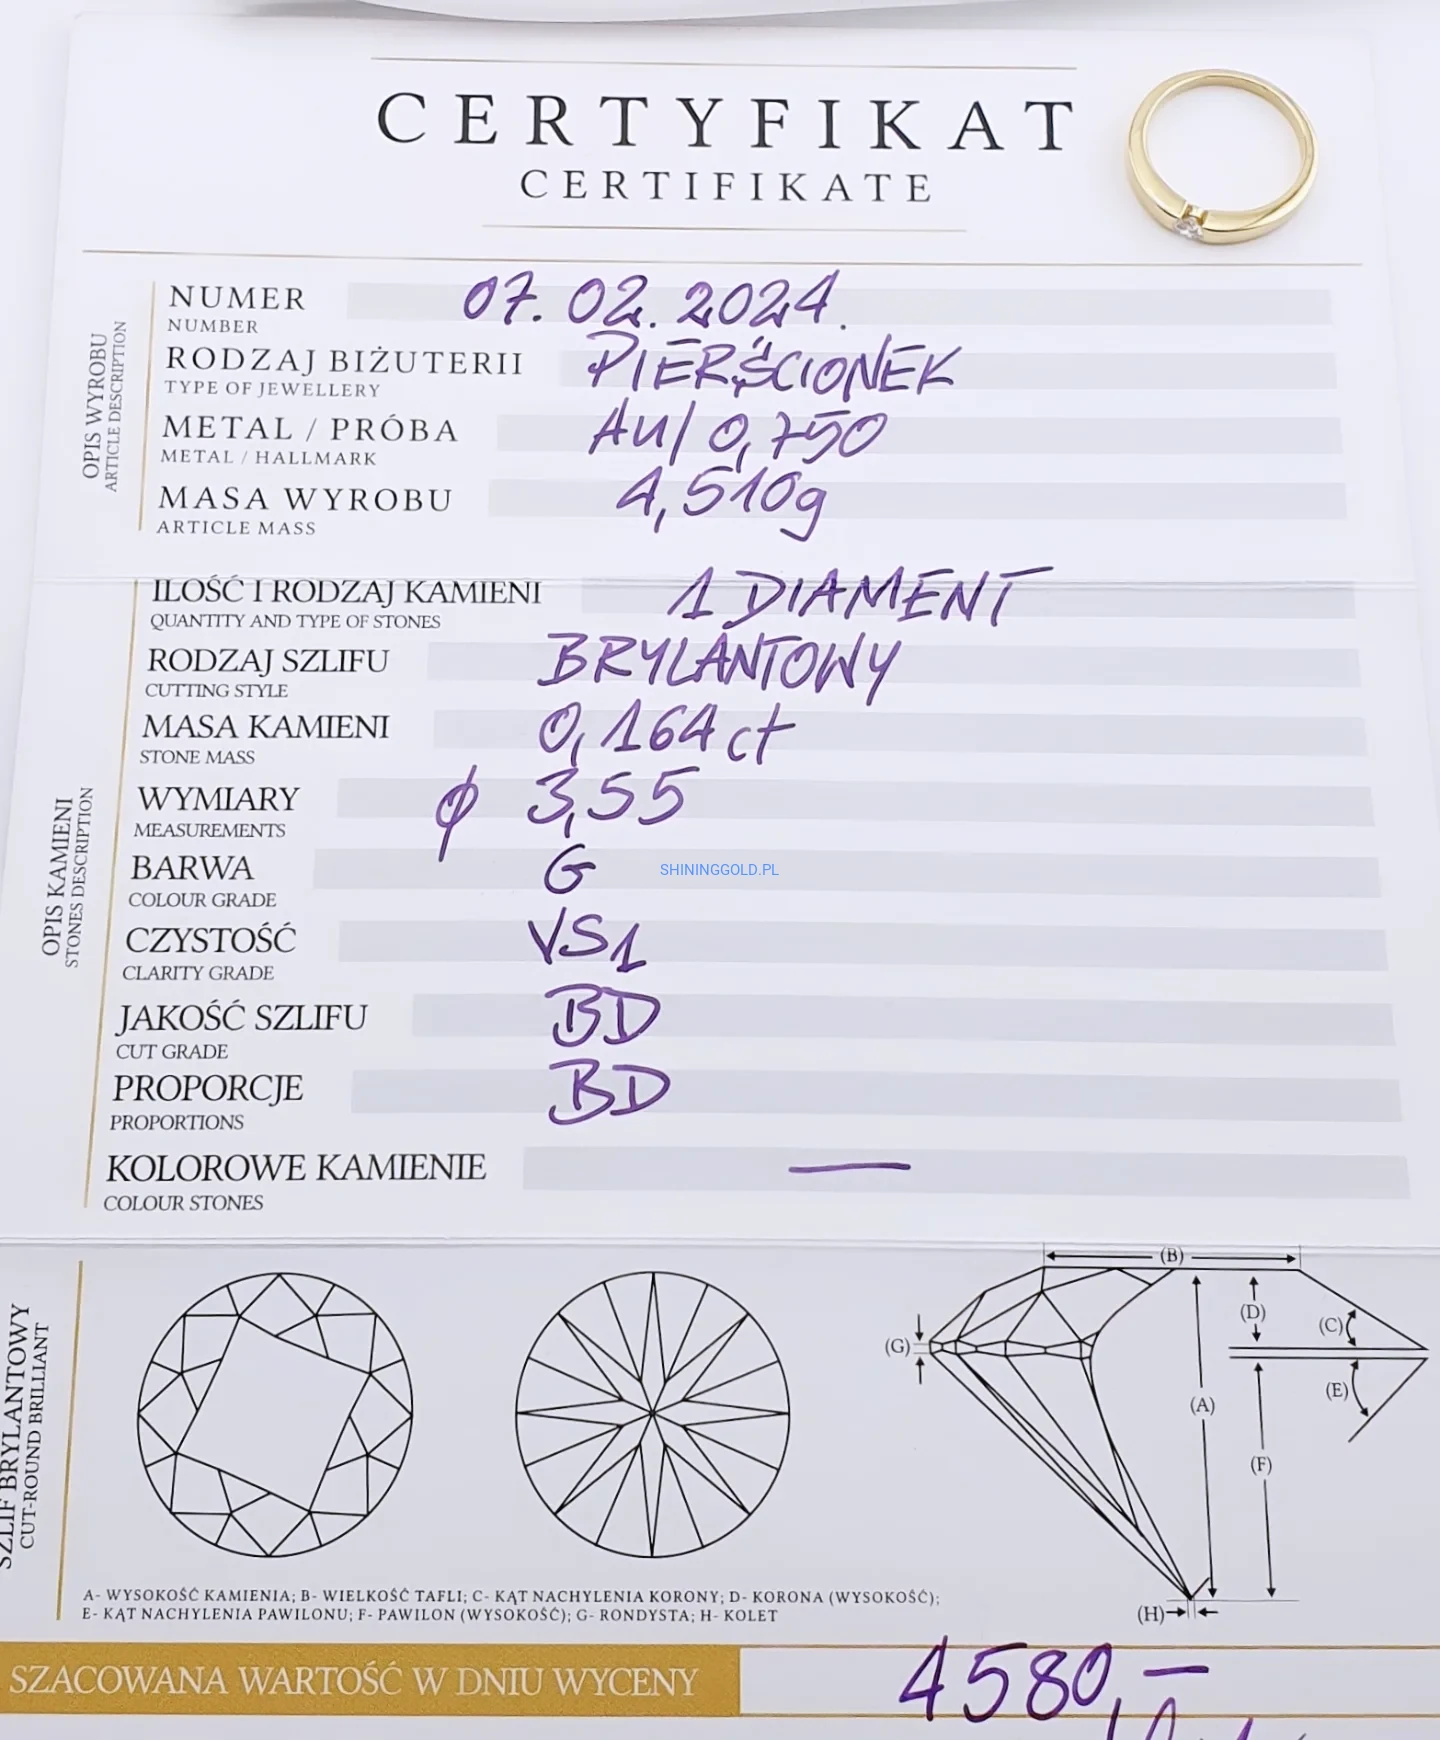 CERTYFIKAT
CERTIFIKATE
OPIS WYROBU
ARTICLE DESCRIPTION
NUMER 07.02.2024.
NUMBER
RODZAJ BIŻUTERII PIERŚCIONEK
TYPE OF JEWELLERY
METAL / PRÓBA AU/ 0,750
METAL / HALLMARK
MASA WYROBU 4,510g
ARTICLE MASS
OPIS KAMIENI
STONES DESCRIPTION
ILOŚĆ I RODZAJ KAMIENI 1 DIAMENT
QUANTITY AND TYPE OF STONES
RODZAJ SZLIFU BRYLANTOWY
CUTTING STYLE
MASA KAMIENI 0,164 ct
STONE MASS
WYMIARY ϕ 3,55
MEASUREMENTS
BARWA G
SHININGGOLD.PL
COLOUR GRADE
CZYSTOŚĆ VS1
CLARITY GRADE
JAKOŚĆ SZLIFU BD
CUT GRADE
PROPORCJE BD
PROPORTIONS
KOLOROWE KAMIENIE —
COLOUR STONES
SZLIF BRYLANTOWY
CUT-ROUND BRILLIANT
(B)
(D)
(C)
(G)
(E)
(A)
(F)
(H)
A- WYSOKOŚĆ KAMIENIA; B- WIELKOŚĆ TAFLI; C- KĄT NACHYLENIA KORONY; D- KORONA (WYSOKOŚĆ);
E- KĄT NACHYLENIA PAWILONU; F- PAWILON (WYSOKOŚĆ); G- RONDYSTA; H- KOLET
SZACOWANA WARTOŚĆ W DNIU WYCENY 4580,—